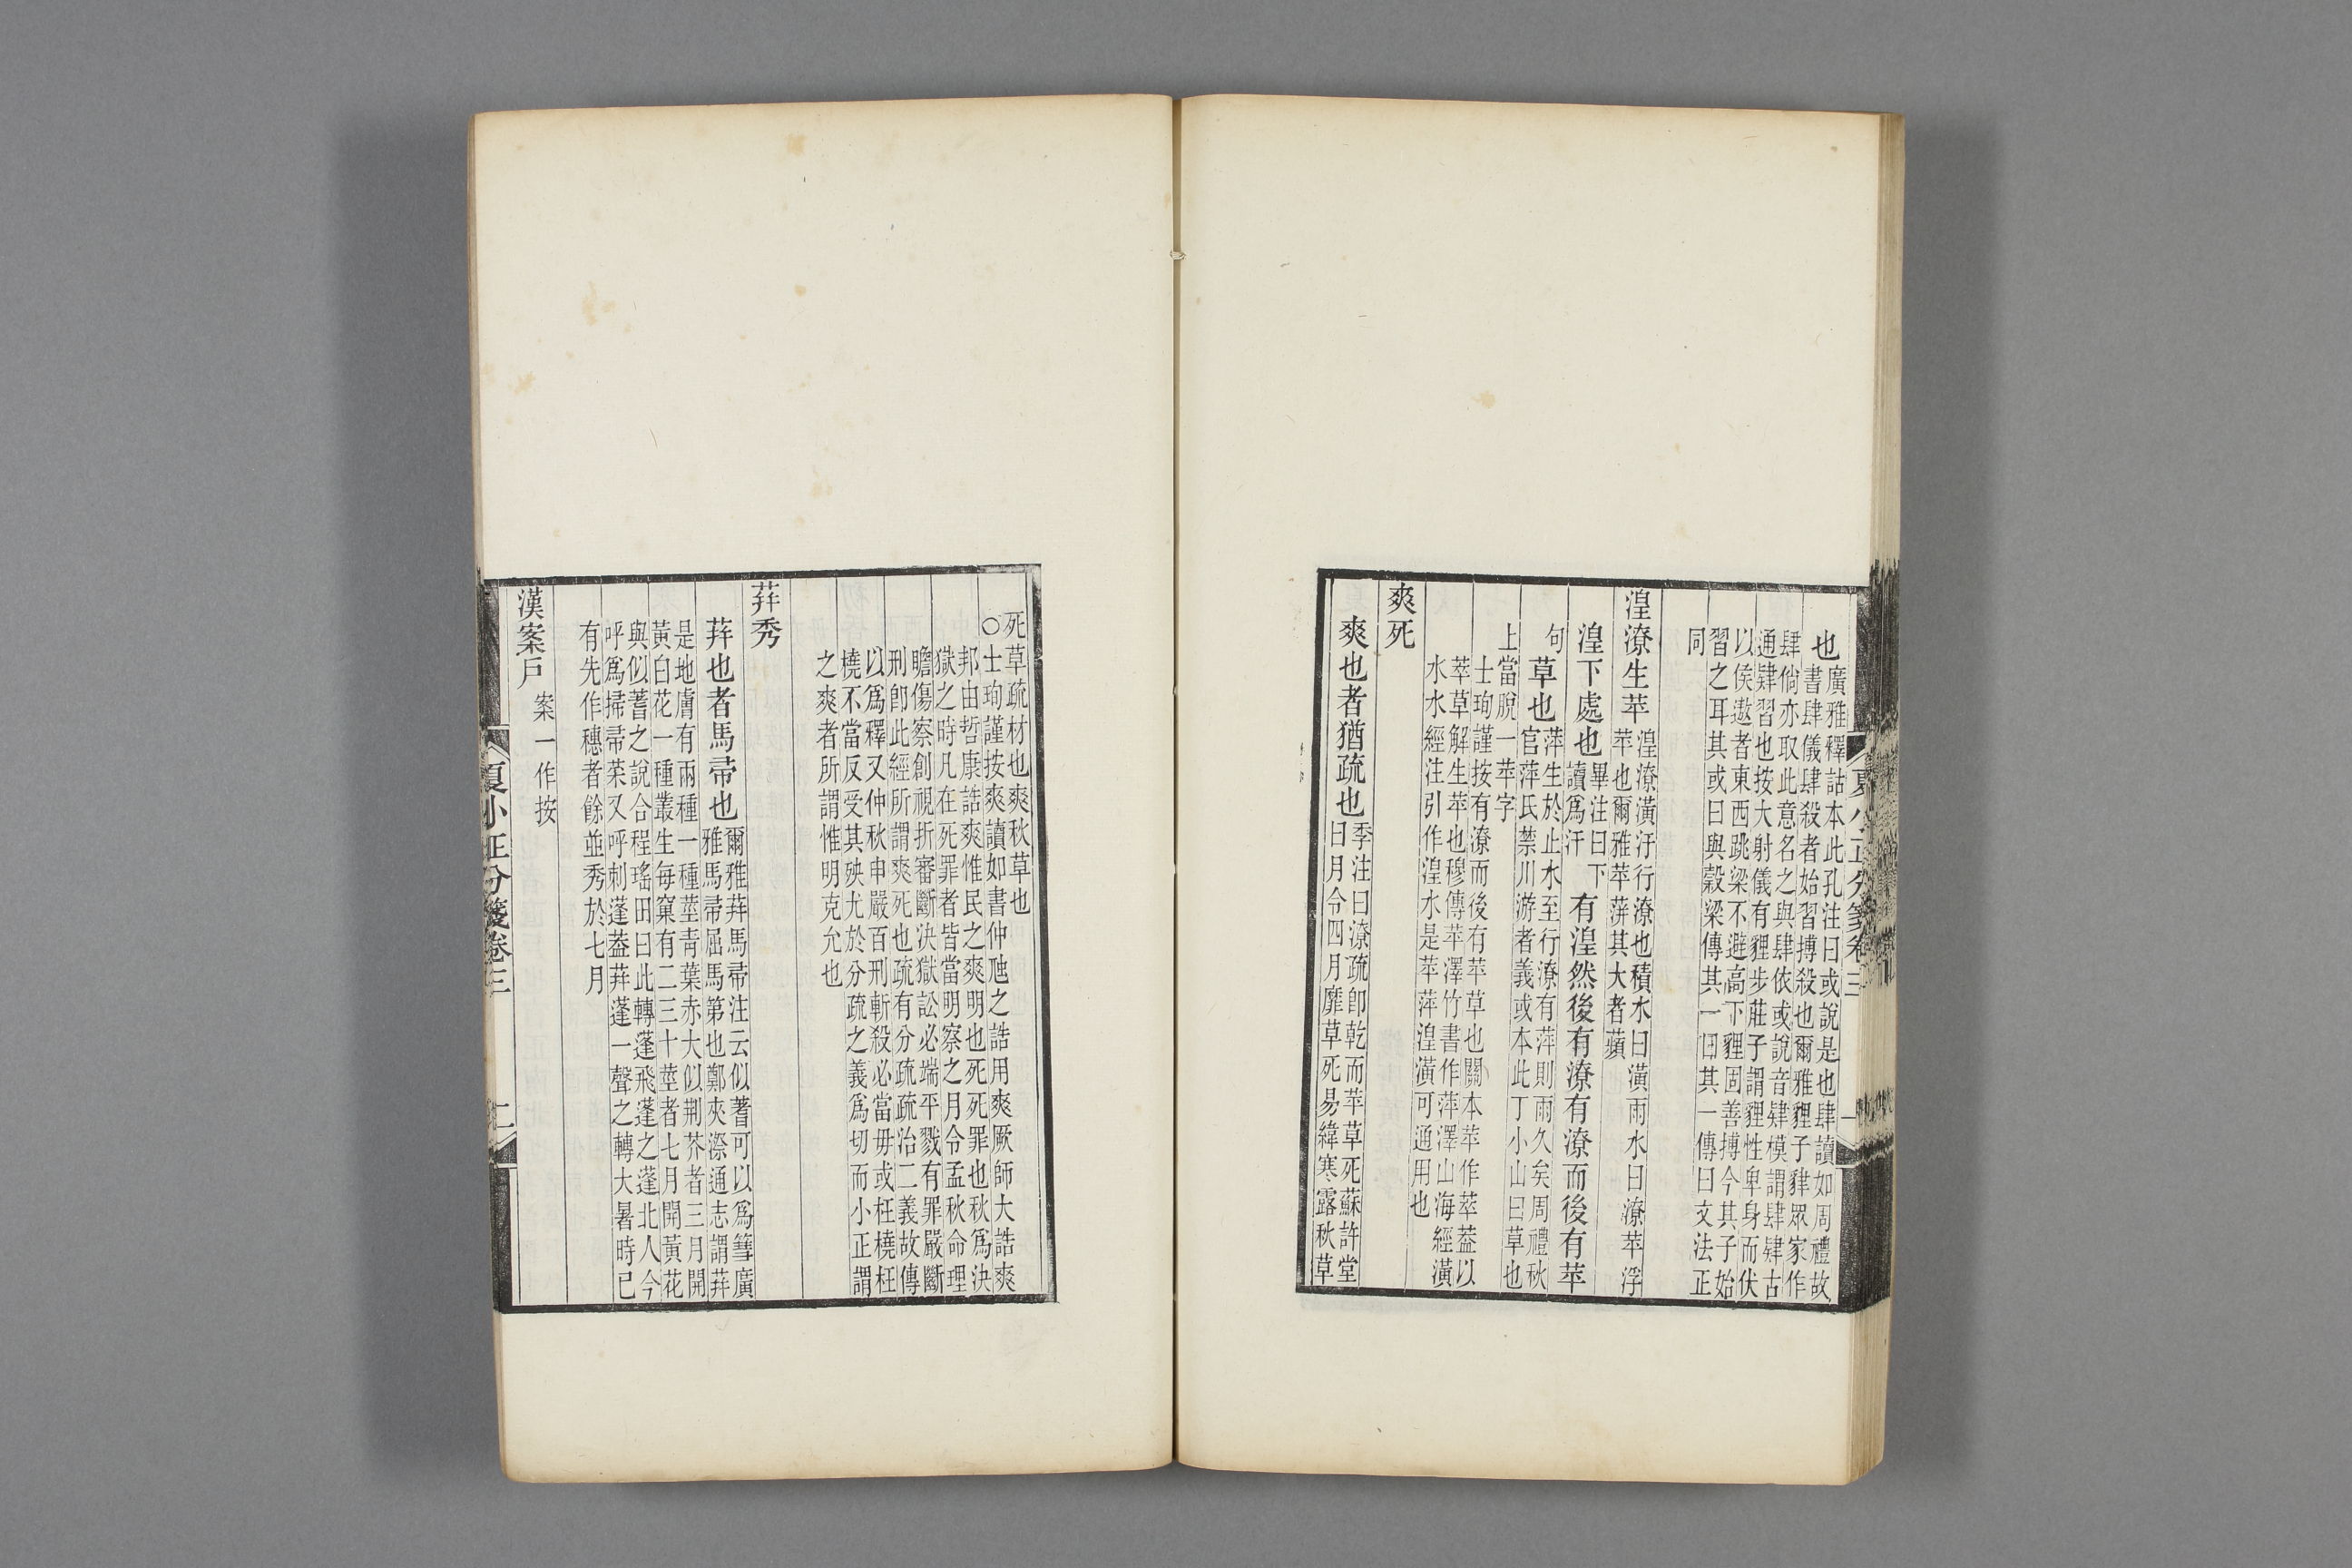 夏小正分箋卷三
一
也
廣雅釋詁本此孔注曰或說是也肆讀如周禮故
書肆儀肆殺者始習搏殺也爾雅貍子貄眾家作
肆倘亦取此意名之與肆依或說音肄模謂肆肄古
通肄習也按大射儀有貍步莊子謂貍性卑身而伏
以侯遨者東西跳梁不避高下貍固善搏今其子始
習之耳其或曰與穀梁傳其一曰其一傳曰文法正
同
湟潦生苹
湟潦潢汙行潦也積水曰潢雨水曰潦苹浮
苹也爾雅苹蓱其大者蘋
湟下處也
畢注曰下
讀爲汙
有湟然後有潦有潦而後有苹
句
草也
萍生於止水至行潦有萍則雨久矣周禮秋
官萍氏禁川游者義或本此丁小山曰草也
上當脫一苹字
士珣謹按有潦而後有苹草也關本苹作萃葢以
萃草解生苹也穆傳苹澤竹書作萍澤山海經潢
水水經注引作湟水是苹萍湟潢可通用也
爽死
爽也者猶疏也
季注曰潦疏卽乾而苹草死蘇許堂
曰月令四月靡草死易緯寒露秋草
死草疏材也爽秋草也
○士珣謹按爽讀如書仲虺之誥用爽厥師大誥爽
邦由哲康誥爽惟民之爽明也死死罪也秋爲決
獄之時凡在死罪者皆當明察之月令孟秋命理
瞻傷察創視折審斷決獄訟必端平戮有罪嚴斷
刑卽此經所謂爽死也疏有分疏疏治二義故傳
以爲釋又仲秋申嚴百刑斬殺必當毋或枉橈枉
橈不當反受其殃尤於分疏之義爲切而小正謂
之爽者所謂惟明克允也
荓秀
荓也者馬帚也
爾雅荓馬帚注云似蓍可以爲篲廣
雅馬帚屈馬第也鄭夾漈通志謂荓
是地膚有兩種一種莖青葉赤大似荆芥者三月開
黃白花一種叢生每窠有二三十莖者七月開黃花
與似蓍之說合程瑤田曰此轉蓬飛蓬之蓬北人今
呼爲掃帚菜又呼刺蓬葢荓蓬一聲之轉大暑時已
有先作穗者餘並秀於七月
漢案戶
案一作按
夏小正分箋卷三
二